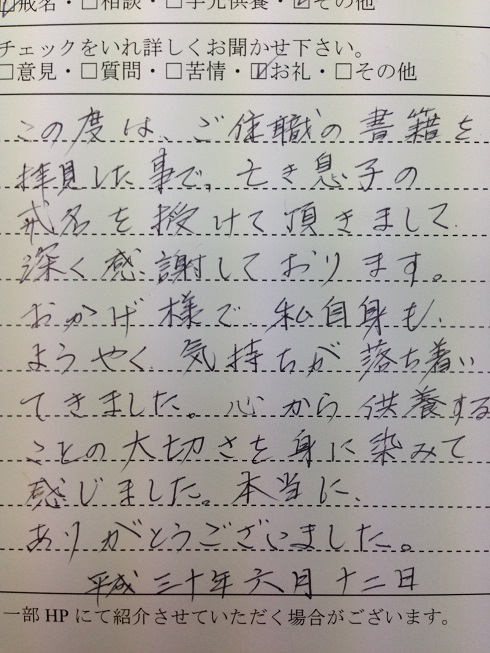 ☑戒名・□相談・□手元供養・☑その他
チェックをいれ詳しくお聞かせ下さい。
□意見・□質問・□苦情・☑お礼・□その他
この度は、ご住職の書籍を
拝見した事で、亡き息子の
戒名を授けて頂きまして
深く感謝しております。
おかげ様で、私自身も、
ようやく気持ちが落ち着い
てきました。心から供養する
ことの大切さを身に染みて
感じました。本当に、
ありがとうございました。
平成三十年六月十二日
一部HPにて紹介させていただく場合がございます。